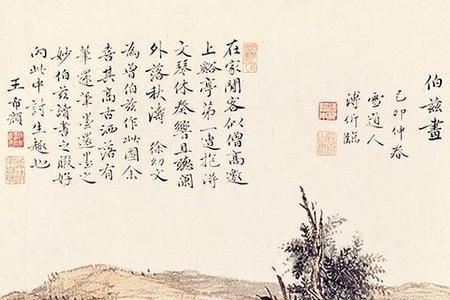 伯茲畫
己卯仲春
雪道人
溥伒臨
在家閒客似僧高邀
上谿亭第一遭抱得
文琴休奏響且聽閣
外落秋濤 徐幼文
為曾伯茲作此圖余
喜其高古洒落有
筆還筆墨還墨之
妙伯茲讀書之暇好
向此中討生趣也
王